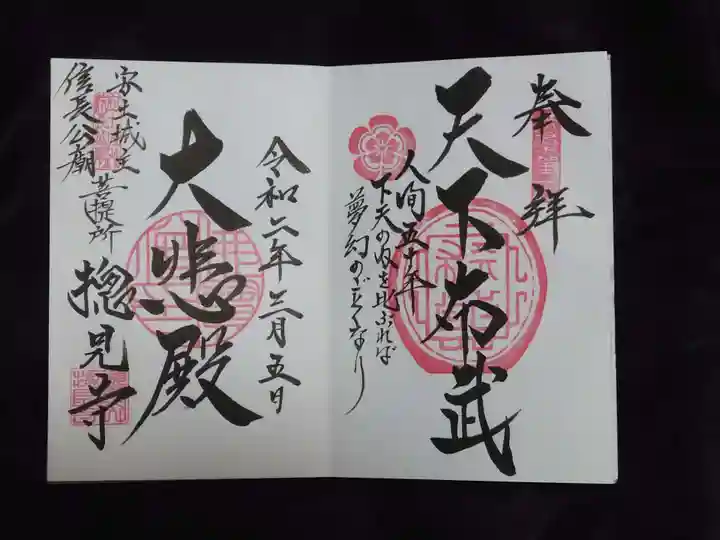 奉拝
天下布武
人間五十年
下天の内を比ぶれば
夢幻のごとくなり
令和六年三月五日
大悲殿
安土城主
信長公廟
菩提所
摠見寺